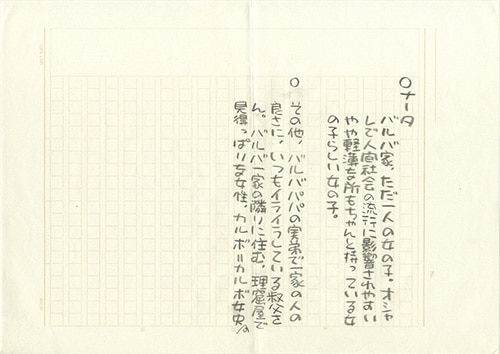 ○ナータ
バルバ家、ただ一人の女の子。オシャ
レで人間社会の流行に影響されやすい
やや軽薄な所もちゃんと持っている女
の子らしい女の子。
○
その他、バルバパパの実弟で一家の人の
良さに、いつもイライラしている叔父さ
ん。バルバ一家の隣りに住む、理窟屋で
見得っぱりな女性、カルボ=カルボ女史。